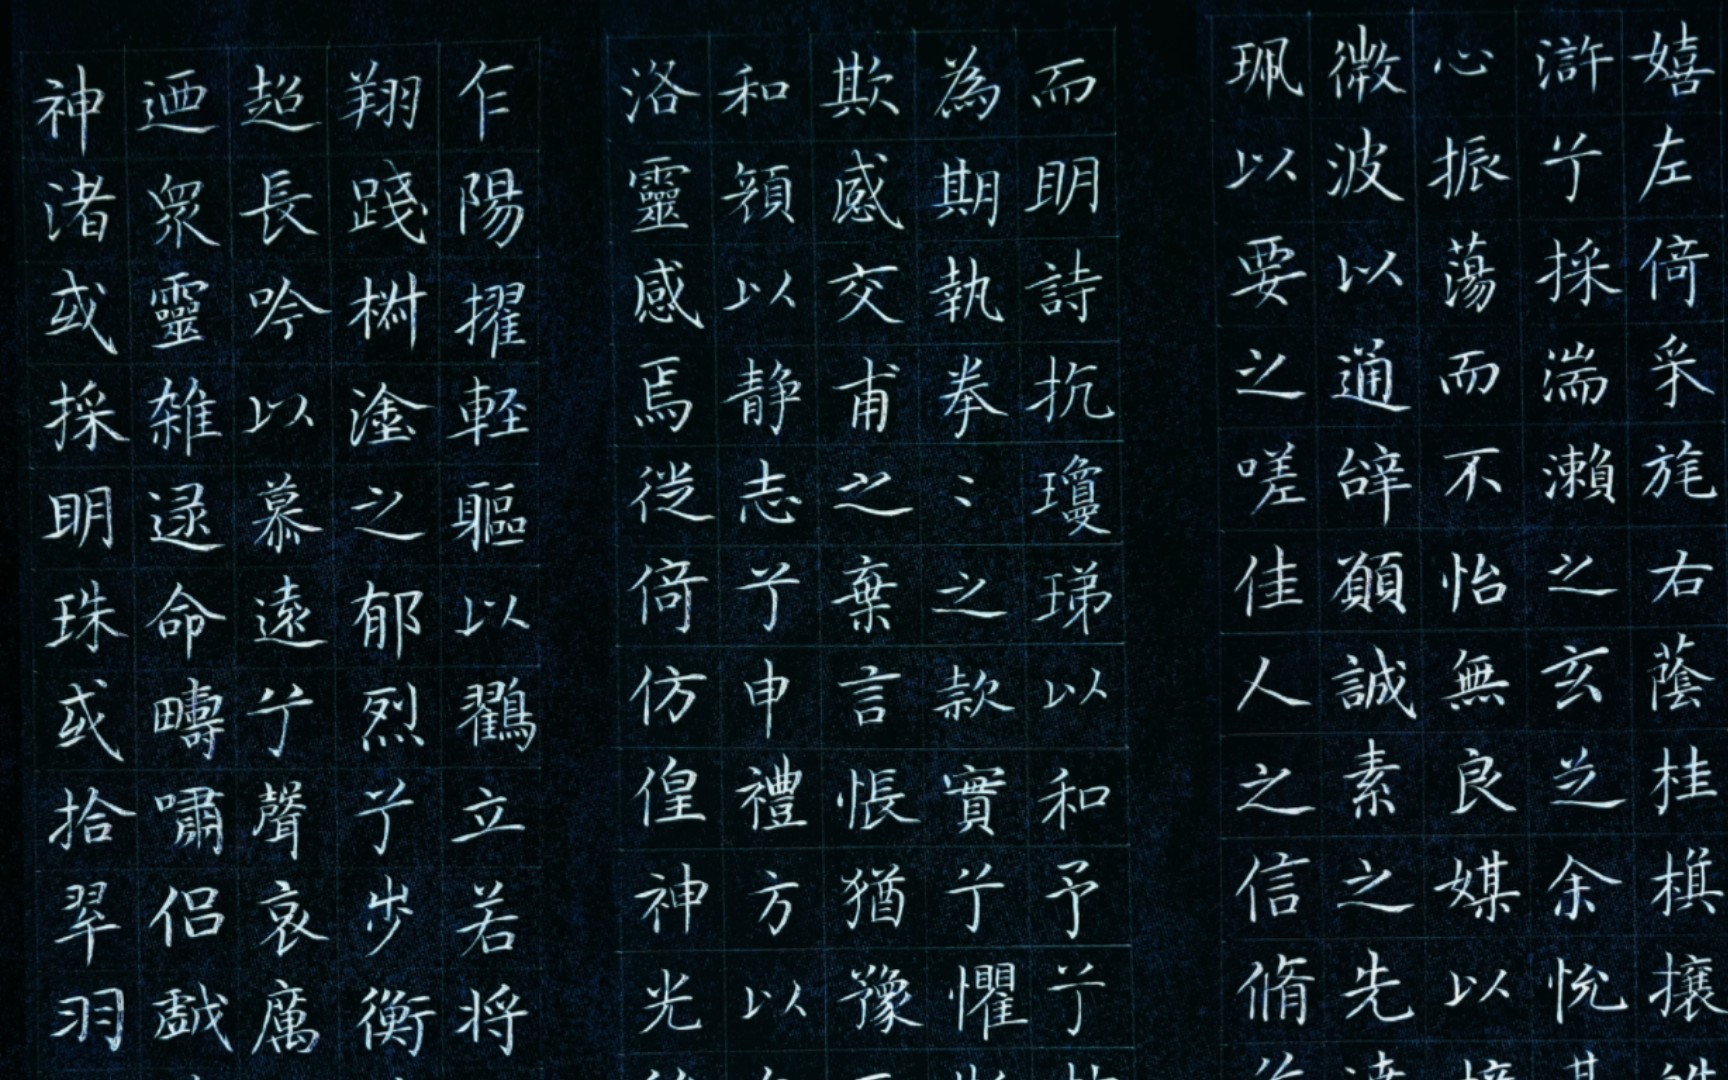 嬉左倚采旄右蔭桂棋攘
滸兮採湍瀨之玄芝余悅
心振蕩而不怡無良媒以
微波以通辝願誠素之先
珮以要之嗟佳人之信脩
而明詩抗瓊珶以和予兮
為期執拳〻之款實兮懼
欺感交甫之棄言悵猶豫
和顏以静志兮申禮方以
洛靈感焉徙倚仿偟神光
乍陽擢軽軀以鸖立若将
翔踐椒塗之郁烈兮步衡
超長吟以慕遠兮聲哀厲
迺衆靈雑遝命疇嘯侶戲
神渚或採明珠或拾翠羽